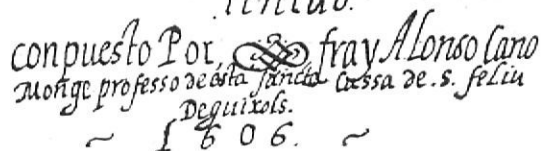 conpuesto Por, fray Alonso Cano
Monge professo de esta sancta Cassa de .s. feliu
Deguixols.
~ 1606. ~